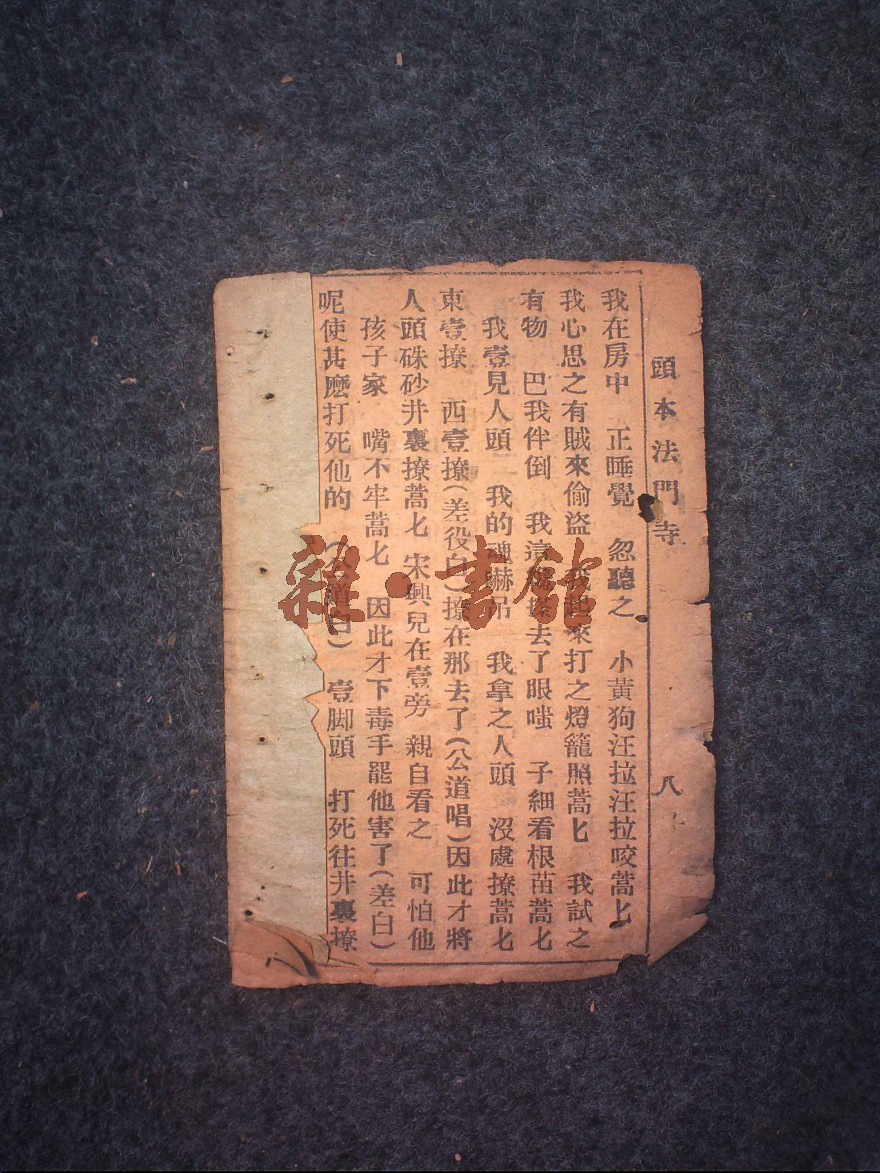 頭本法門寺 八
我在房中 正睡覺 忽聽之 小黃狗汪拉汪拉咬蒿匕
我心思之有賊來偷盜 我起來打之燈籠照蒿匕 我試之
有物 巴我伴倒 我這 去了眼嗤 子細看根苗蒿匕
我壹見人頭 我的魂嚇吊 我拿之人頭 沒處撩蒿匕
東壹撩 西壹撩(差役白)撩在那去了(公道唱)因此才將
人頭硃砂井裏撩蒿匕 宋興兒在壹旁 親自看之 可怕他
孩子家 嘴不牢蒿匕 因此才下毒手罷他害了(差白)
呢使甚麼打死他的 (公道白) 壹脚頭 打死往井裏撩
雜·書館